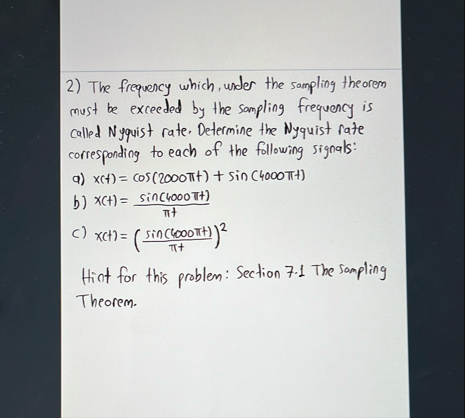 2) The frequency which, under the sampling theorem
must be exceeded by the sampling frequency is
called Nyquist rate. Determine the Nyquist rate
corresponding to each of the following signals:
a) x(t) = cos(2000πt) + sin(4000πt)
b) x(t) = sin(4000πt) / πt
c) x(t) = (sin(4000πt) / πt)²
Hint for this problem: Section 7.1 The Sampling
Theorem.